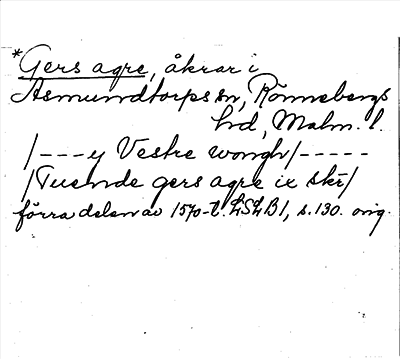 *Gers agre, åkrar i
Asmundtorps sn, Rönnebergs
hd, Malm. l.
/---y Vestre wongh/-----
/Tuende gers agre ix skr/
förra delen av 1570-t. LSLB1, s. 130. orig.